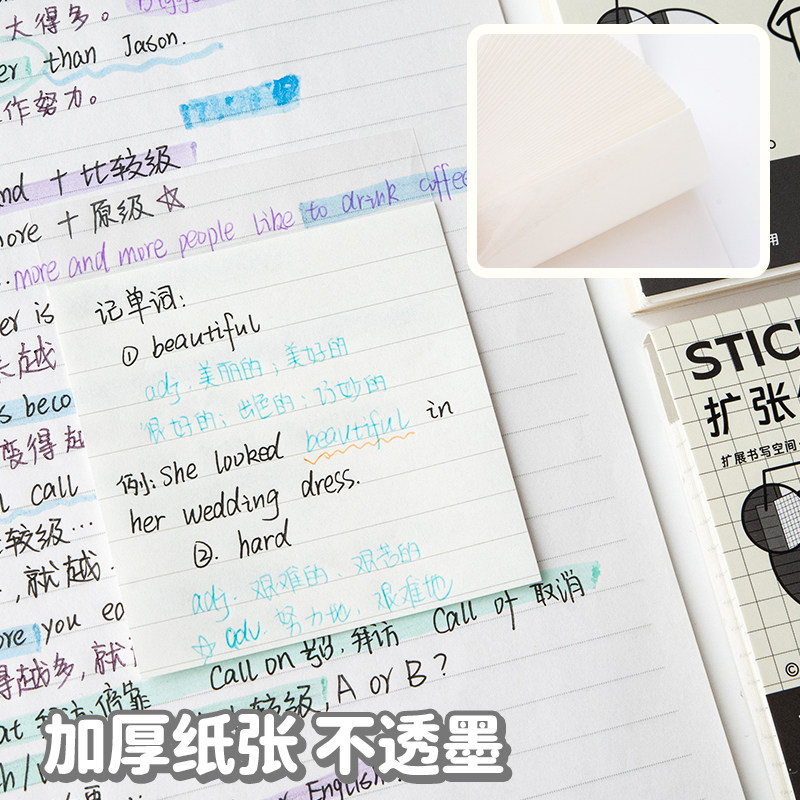 大得多。
er than Jason.
作努力。
nd + 比较级
more + 原级 ☆
...more and more people like to drink coffee
er is
记单词:
① beautiful
adj. 美丽的；美好的
很好的；出色的；巧妙的
例: She looked beautiful in
her wedding dress.
②. hard
adj. 艰难的、艰苦的
☆ adv. 努力地、艰难地
越
s beco
变得越
l call
较级…
,就越
ore you ea
得越多,就
Call on 号召,拜访 Call off 取消
比较级, A or B?
English.
STIC
扩张
扩展书写空间
用
©
加厚纸张 不透墨